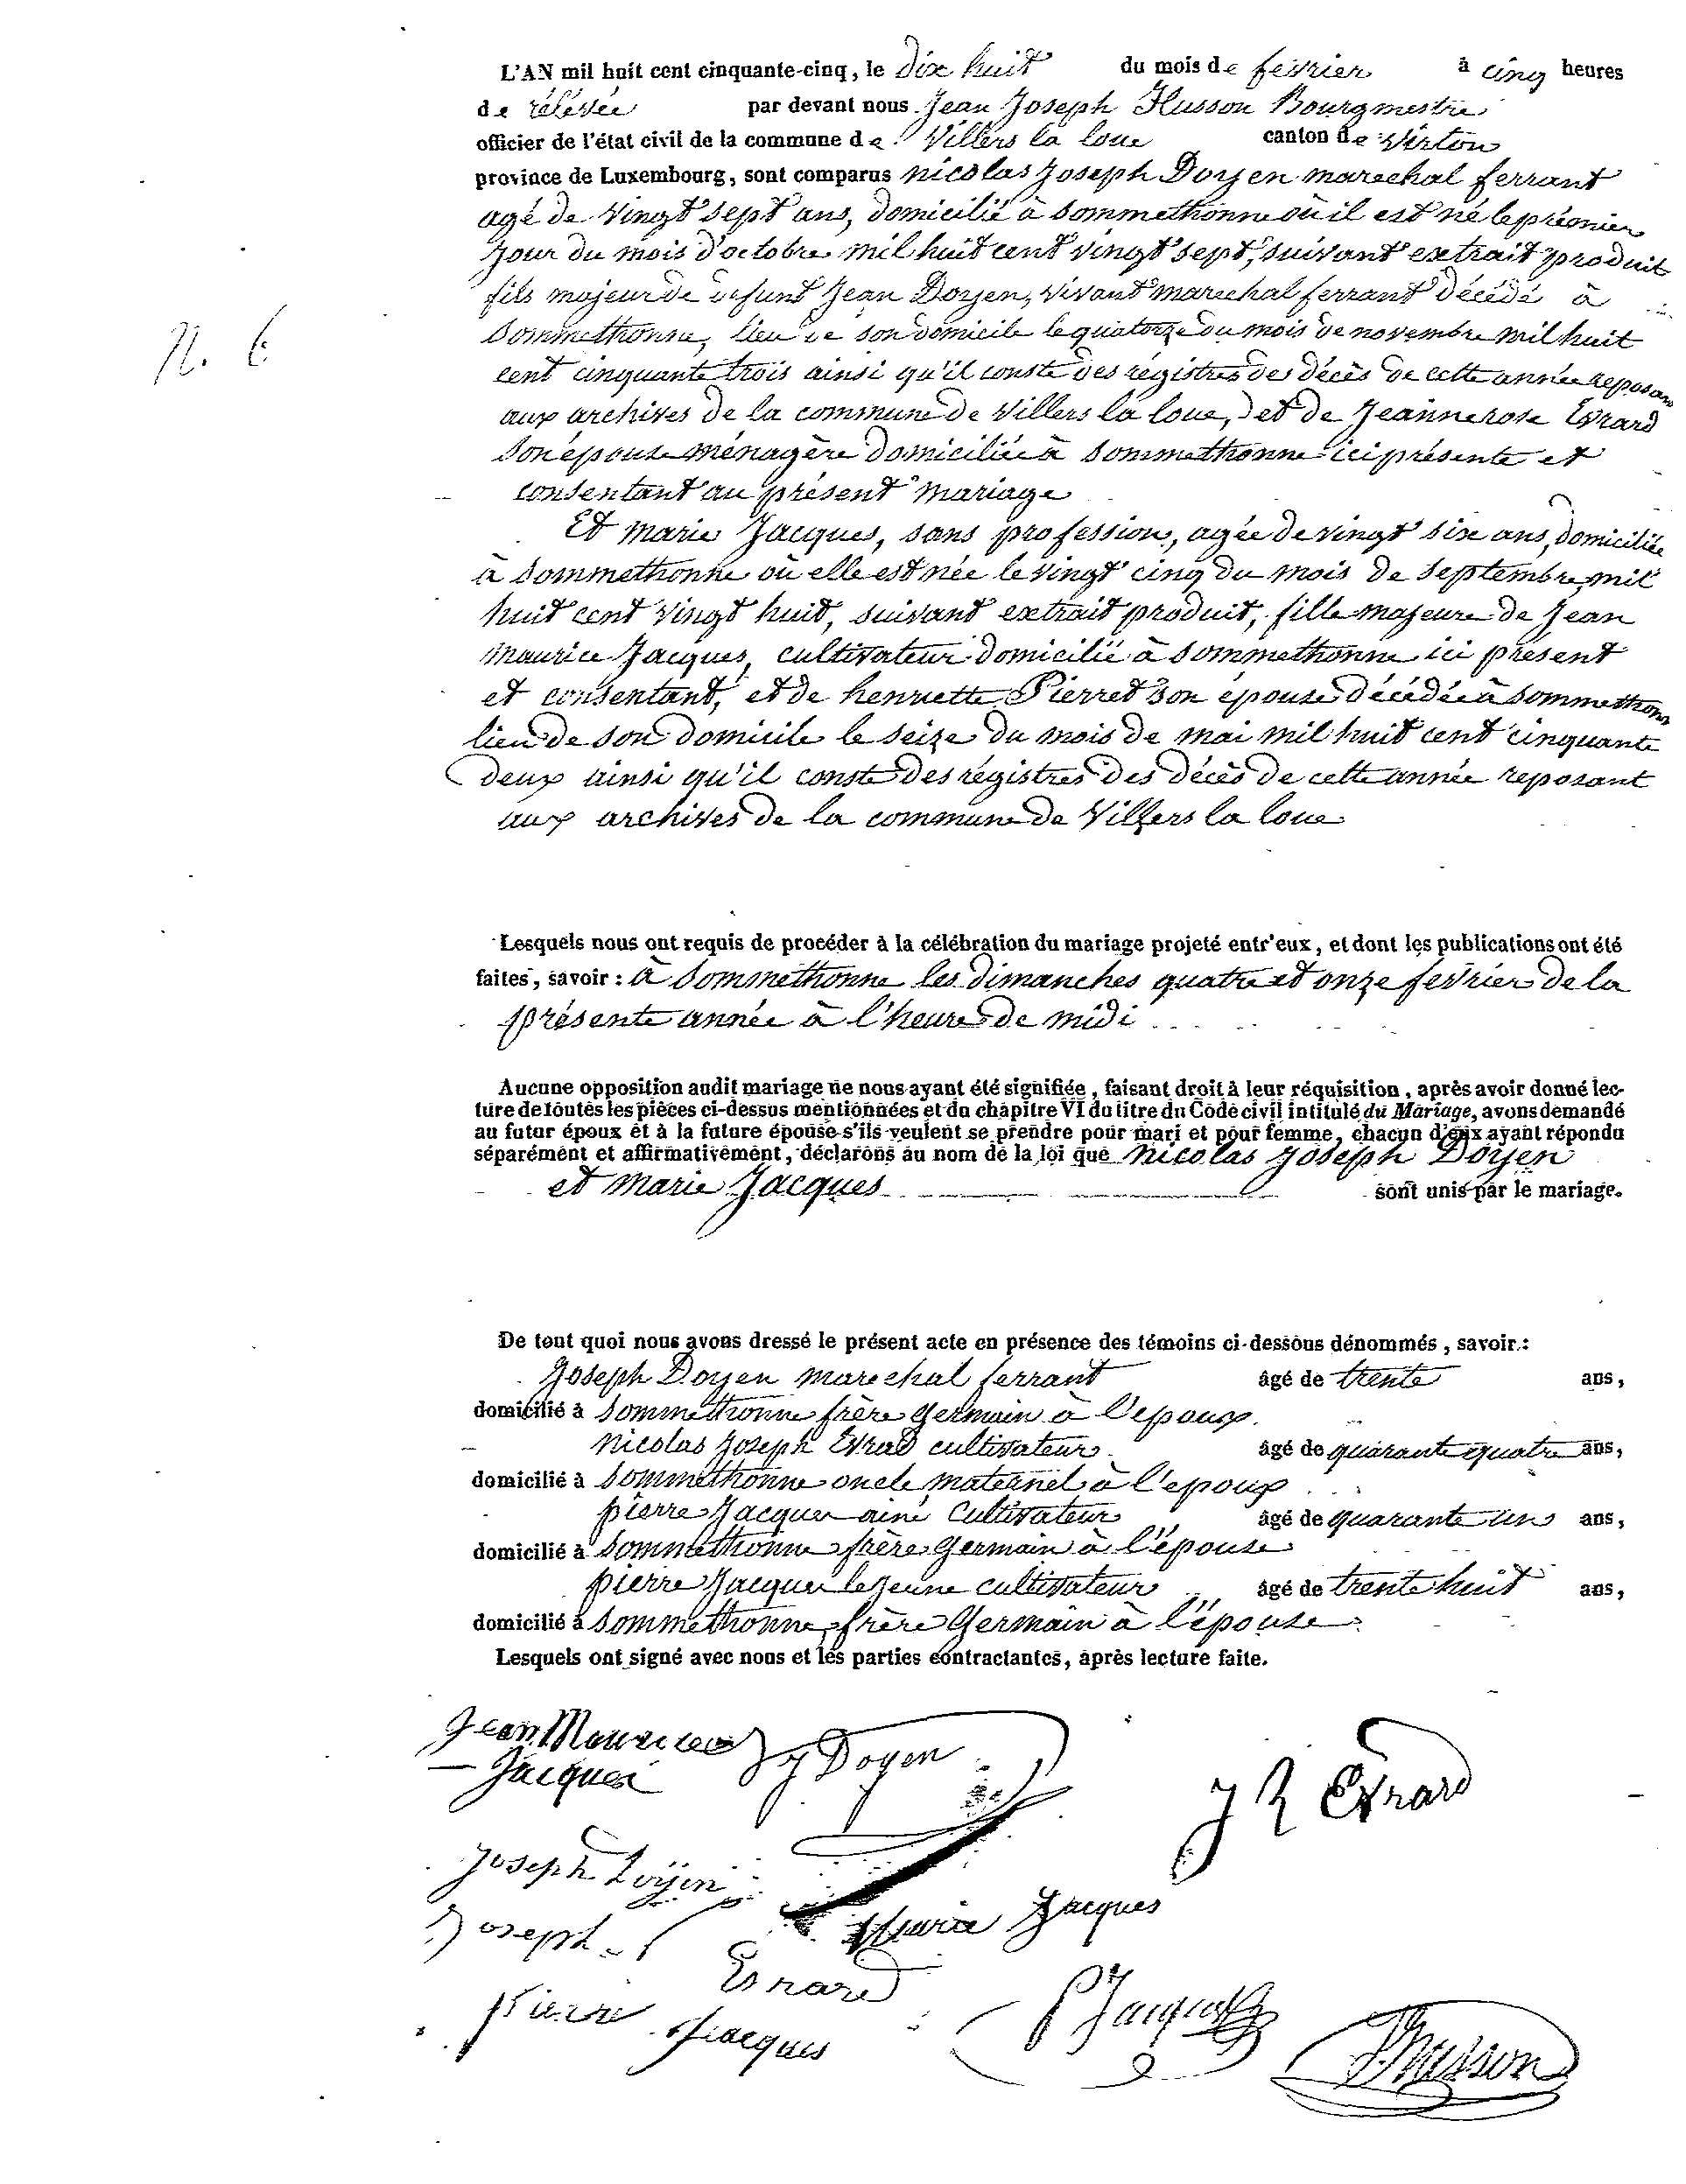 L'AN mil huit cent cinquante-cinq, le dix huit du mois de février à cinq heures
de rélévée par devant nous Jean Joseph Husson Bourgmestre
officier de l'état civil de la commune de Villers la loue canton de Virton
province de Luxembourg, sont comparus nicolas Joseph Doyen marechal ferrant
agé de vingt sept ans, domicilié à Sommethonne où il est né le prémier
jour du mois d'octobre mil huit cent vingt sept, suivant extrait produit
fils majeur de defunt Jean Doyen, vivant marechal ferrant décédé à
Sommethonne, lieu de son domicile le quatorze du mois de novembre mil huit
cent cinquante trois ainsi qu'il conste des régistres des décès de cette année reposant
aux archives de la commune de Villers la loue, et de Jeanne rose Evrard
son épouse ménagère domiciliée à Sommethonne ici présente et
consentant au présent mariage
Et marie Jacques, sans profession, agée de vingt six ans, domiciliée
à Sommethonne où elle est née le vingt cinq du mois de septembre mil
huit cent vingt huit, suivant extrait produit, fille majeure de Jean
maurice Jacques, cultivateur domicilié à Sommethonne ici présent
et consentant, et de henriette Pierret son épouse décédée à Sommethonne
lieu de son domicile le seize du mois de mai mil huit cent cinquante
deux ainsi qu'il conste des régistres des décès de cette année reposant
aux archives de la commune de Villers la loue
N. 6
Lesquels nous ont requis de procéder à la célébration du mariage projeté entr'eux, et dont les publications ont été
faites, savoir : à Sommethonne les dimanches quatre et onze février de la
présente année à l'heure de midi
Aucune opposition audit mariage ne nous ayant été signifiée, faisant droit à leur réquisition, après avoir donné lec-
ture de toutes les pièces ci-dessus mentionnées et du chapitre VI du titre du Code civil intitulé du Mariage, avons demandé
au futur époux et à la future épouse s'ils veulent se prendre pour mari et pour femme, chacun d'eux ayant répondu
séparément et affirmativement, déclarons au nom de la loi que nicolas Joseph Doyen
et marie Jacques sont unis par le mariage.
De tout quoi nous avons dressé le présent acte en présence des témoins ci-dessous dénommés, savoir :
Joseph Doyen marechal ferrant âgé de trente ans,
domicilié à Sommethonne frère germain à l'epoux
nicolas Joseph Evrad cultivateur âgé de quarante quatre ans,
domicilié à Sommethonne oncle maternel à l'epoux
pierre Jacques ainé cultivateur âgé de quarante un ans,
domicilié à Sommethonne frère germain à l'épouse
pierre Jacques le jeune cultivateur âgé de trente huit ans,
domicilié à Sommethonne frère germain à l'épouse
Lesquels ont signé avec nous et les parties contractantes, après lecture faite.
Jean Maurice
Jacques
J Doyen
J R Evrard
Joseph Doyen
Marie Jacques
Joseph
Evrard
Pierre Jacques
P Jacques
Husson